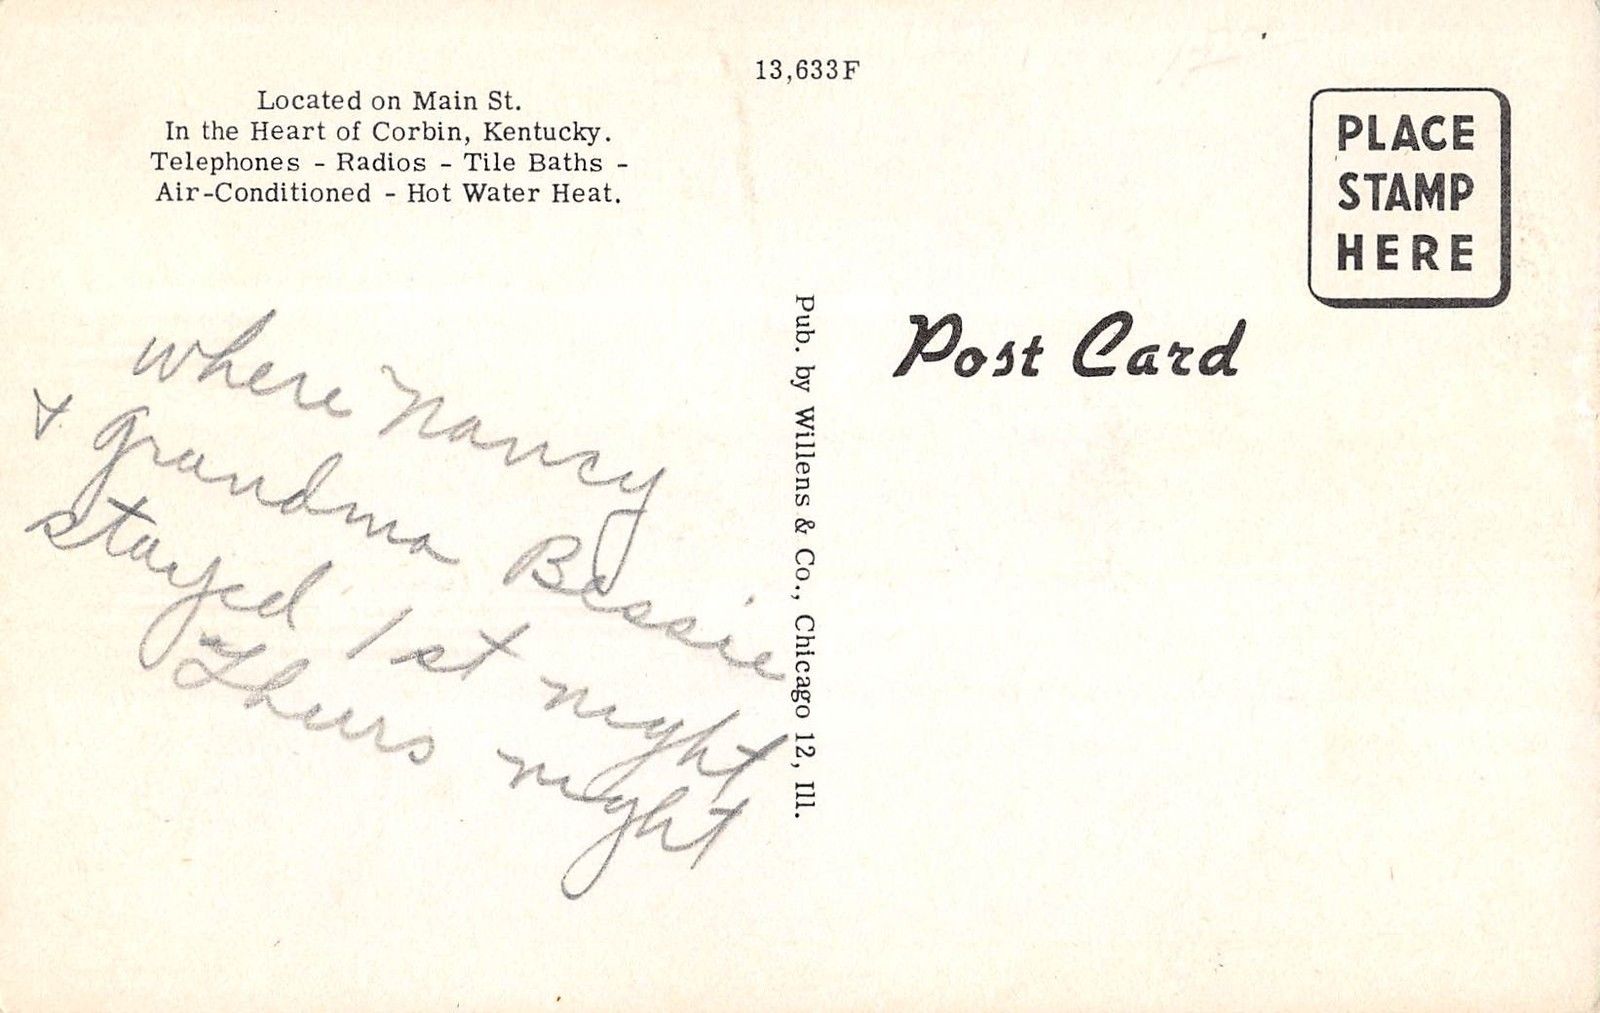 13,633F
Located on Main St.
In the Heart of Corbin, Kentucky.
Telephones - Radios - Tile Baths -
Air-Conditioned - Hot Water Heat.
where Nancy
& Grandma Bessie
stayed 1st night
Thurs night
Pub. by Willens & Co., Chicago 12, Ill.
Post Card
PLACE
STAMP
HERE